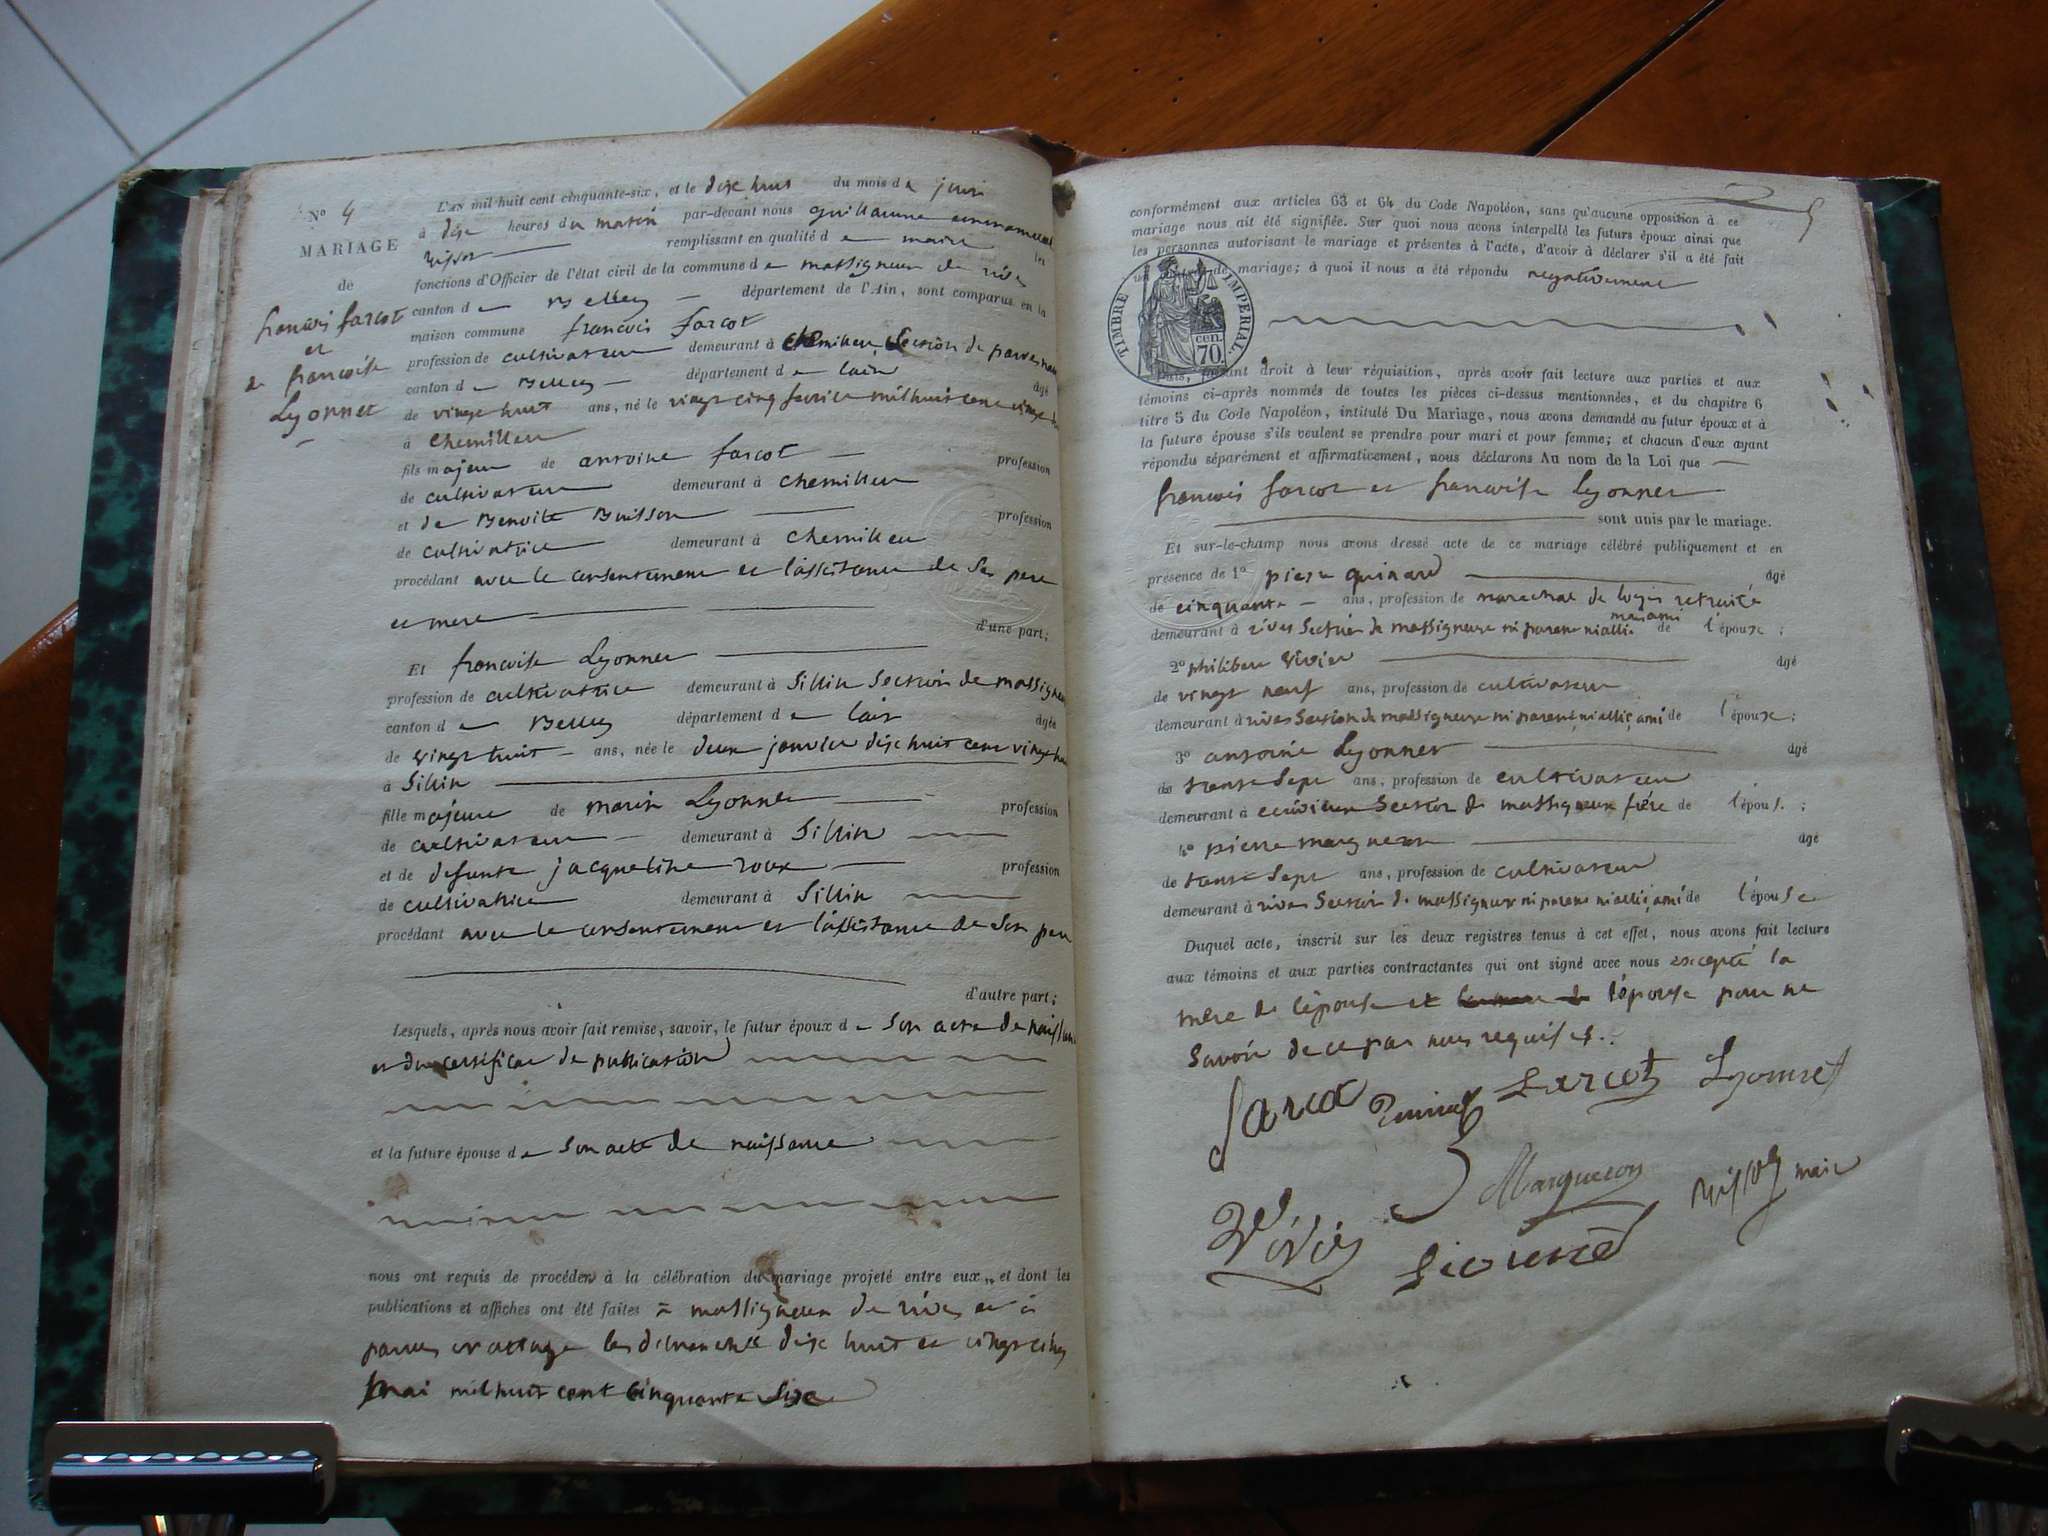 N° 4
MARIAGE
de
françois farcot
et
de françoise
Lyonnet
L'AN mil huit cent cinquante-six, et le dix huit du mois de juin
à dix heures du matin par-devant nous guillaume
remplissant en qualité de maire les
fonctions d'Officier de l'état civil de la commune de massigneux de rives
canton de Belley département de l'Ain, sont comparus en la
maison commune francois farcot
profession de cultivateur demeurant à chemilieu Section de parves
canton de Belley département de lain âgé
de vingt huit ans, né le vingt cinq fevrier mil huit cent vingt
à chemilieu
fils majeur de antoine farcot profession
de cultivateur demeurant à chemilieu
et de Benoite Buisson profession
de cultivatrice demeurant à chemilieu
procédant avec le consentement et l'assistance de Ses pere
et mere
d'une part;
Et francoise Lyonnet
profession de cultivatrice demeurant à Sillin Section de massigneux
canton de Belley département de lain âgée
de vingt huit ans, née le deux janvier dix huit cent vingt huit
à Sillin
fille majeure de marin Lyonnet profession
de cultivateur demeurant à Sillin
et de defunte jacqueline roux profession
de cultivatrice demeurant à Sillin
procédant avec le consentement et l'assistance de Son pere
d'autre part;
Lesquels, après nous avoir fait remise, savoir, le futur époux de Son acte de naissance
et du certificat de publication
et la future épouse de Son acte de naissance
nous ont requis de procéder à la célébration du mariage projeté entre eux, et dont les
publications et affiches ont été faites à massigneux de rives et à
parves les dimanche dix huit et vingt cinq
mai mil huit cent cinquante Six
5
conformément aux articles 63 et 64 du Code Napoléon, sans qu'aucune opposition à ce
mariage nous ait été signifiée. Sur quoi nous avons interpellé les futurs époux ainsi que
les personnes autorisant le mariage et présentes à l'acte, d'avoir à déclarer s'il a été fait
de mariage; à quoi il nous a été répondu negativement
TIMBRE IMPERIAL.
cen.
70.
droit à leur réquisition, après avoir fait lecture aux parties et aux
témoins ci-après nommés de toutes les pièces ci-dessus mentionnées, et du chapitre 6
titre 5 du Code Napoléon, intitulé Du Mariage, nous avons demandé au futur époux et à
la future épouse s'ils veulent se prendre pour mari et pour femme; et chacun d'eux ayant
répondu séparément et affirmativement, nous déclarons Au nom de la Loi que
francois farcot et francoise Lyonnet
sont unis par le mariage.
Et sur-le-champ nous avons dressé acte de ce mariage célébré publiquement et en
présence de 1° pierre âgé
de cinquante ans, profession de marechal de logis retraité
demeurant à rives Section de massigneux ni parent ni allié mais ami de l'époux;
2° philibert vivier âgé
de vingt neuf ans, profession de cultivateur
demeurant à rives Section de massigneux ni parent ni allié, ami de l'époux;
3° antoine Lyonnet âgé
de trente Sept ans, profession de cultivateur
demeurant à Section de massigneux frére de l'épous.;
4° pierre âgé
de trente Sept ans, profession de cultivateur
demeurant à rives Section de massigneux ni parent ni allié, ami de l'épouse
Duquel acte, inscrit sur les deux registres tenus à cet effet, nous avons fait lecture
aux témoins et aux parties contractantes qui ont signé avec nous excepté la
mère de l'épouse et l'épouse pour ne
Savoir de ce par nous requises.
farcot farcot Lyonnet
maire